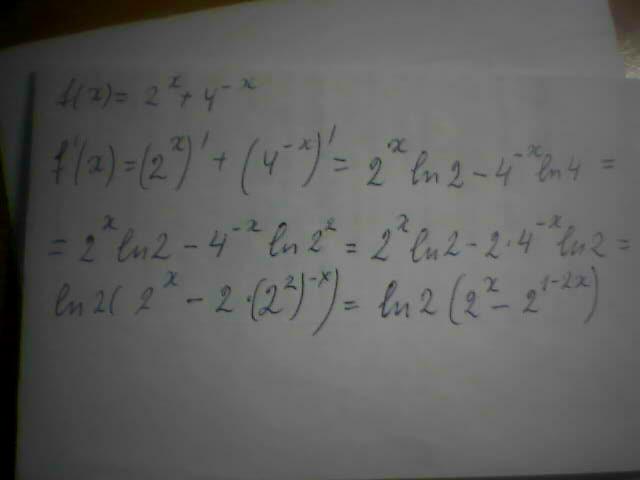 f(x) = 2^x + 4^{-x}
f'(x) = (2^x)' + (4^{-x})' = 2^x ln 2 - 4^{-x} ln 4 =
= 2^x ln 2 - 4^{-x} ln 2^2 = 2^x ln 2 - 2 · 4^{-x} ln 2 =
ln 2 ( 2^x - 2 · (2^2)^{-x} ) = ln 2 ( 2^x - 2^{1-2x} )